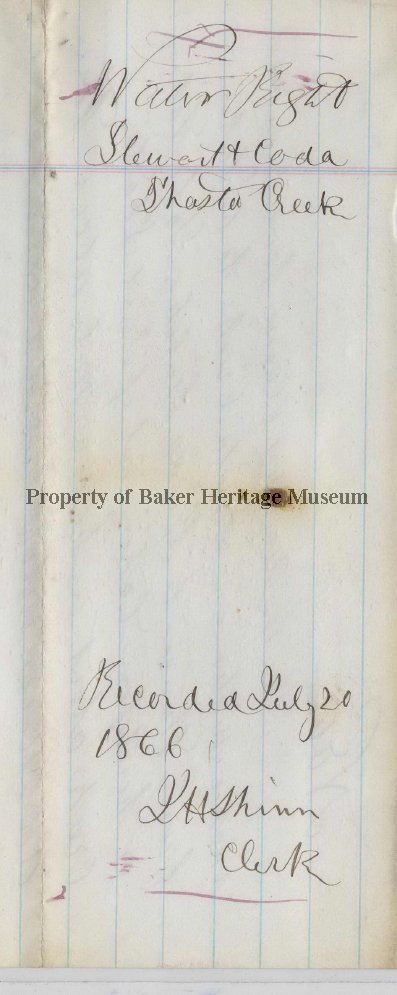 Water Right
Stewart & Coda
Shasta Creek
Property of Baker Heritage Museum
Recorded July 20
1866
J H Shinn
Clerk